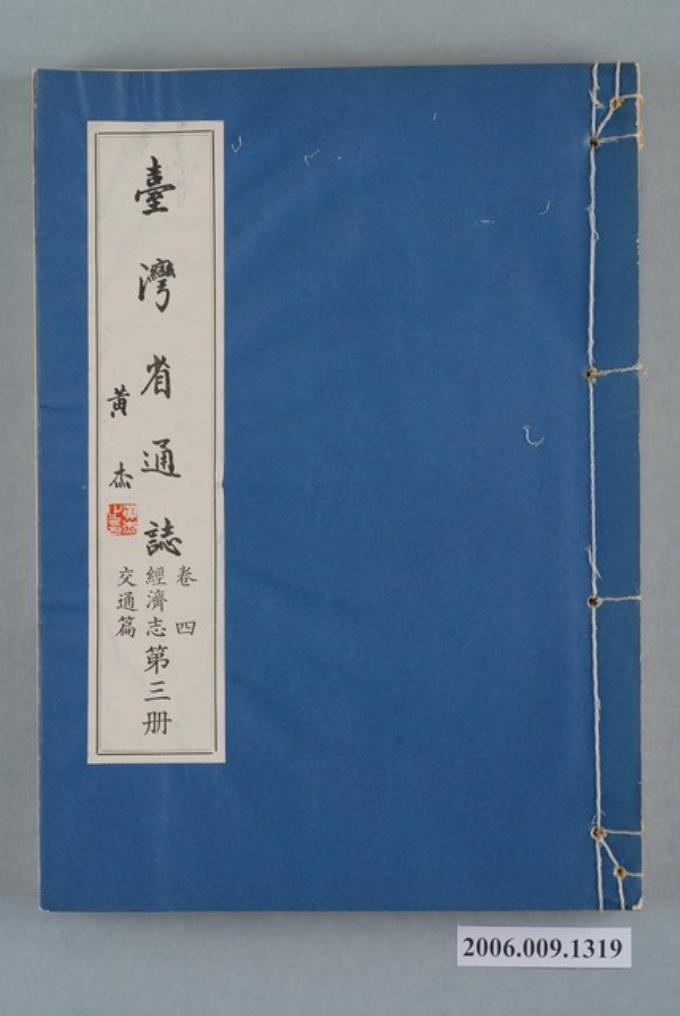 臺灣省通誌
卷四
經濟志
交通篇
第三册
黃杰
2006.009.1319